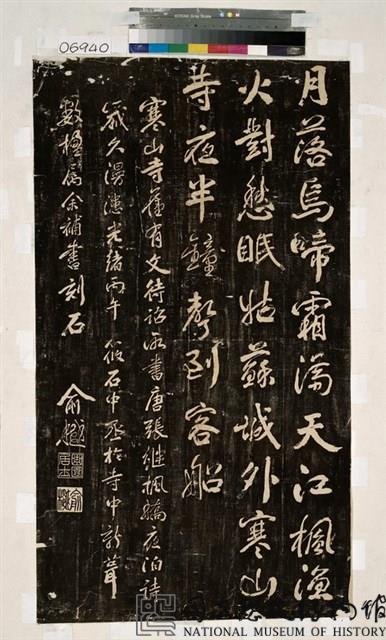 06940
月落烏啼霜滿天江楓漁
火對愁眠姑蘇城外寒山
寺夜半鐘聲到客船
寒山寺舊有文待詔所書唐張繼楓橋夜泊詩
歲久漫漶光緒丙午筱石中丞於寺中新葺
數楹屬余補書刻石
俞樾
NATIONAL MUSEUM OF HISTORY